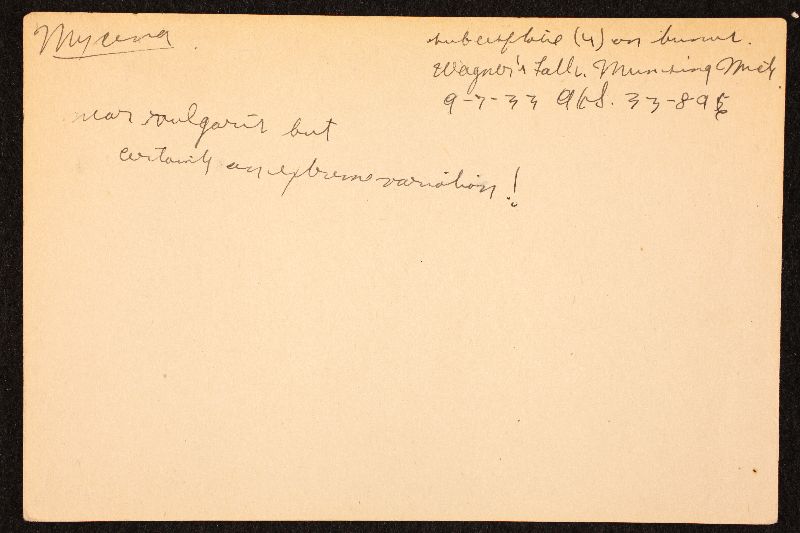 Mycena
subcespitose (4) on humus.
Wagner's Falls. Munising Mich
9-7-33 AHS. 33-895
near vulgaris but
certainly an extreme variation!